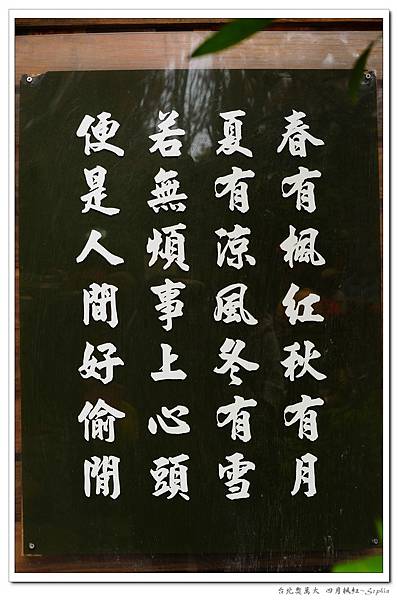 春有楓紅秋有月
夏有涼風冬有雪
若無煩事上心頭
便是人間好偷閒
台北奧萬大 四月楓紅~Sophia